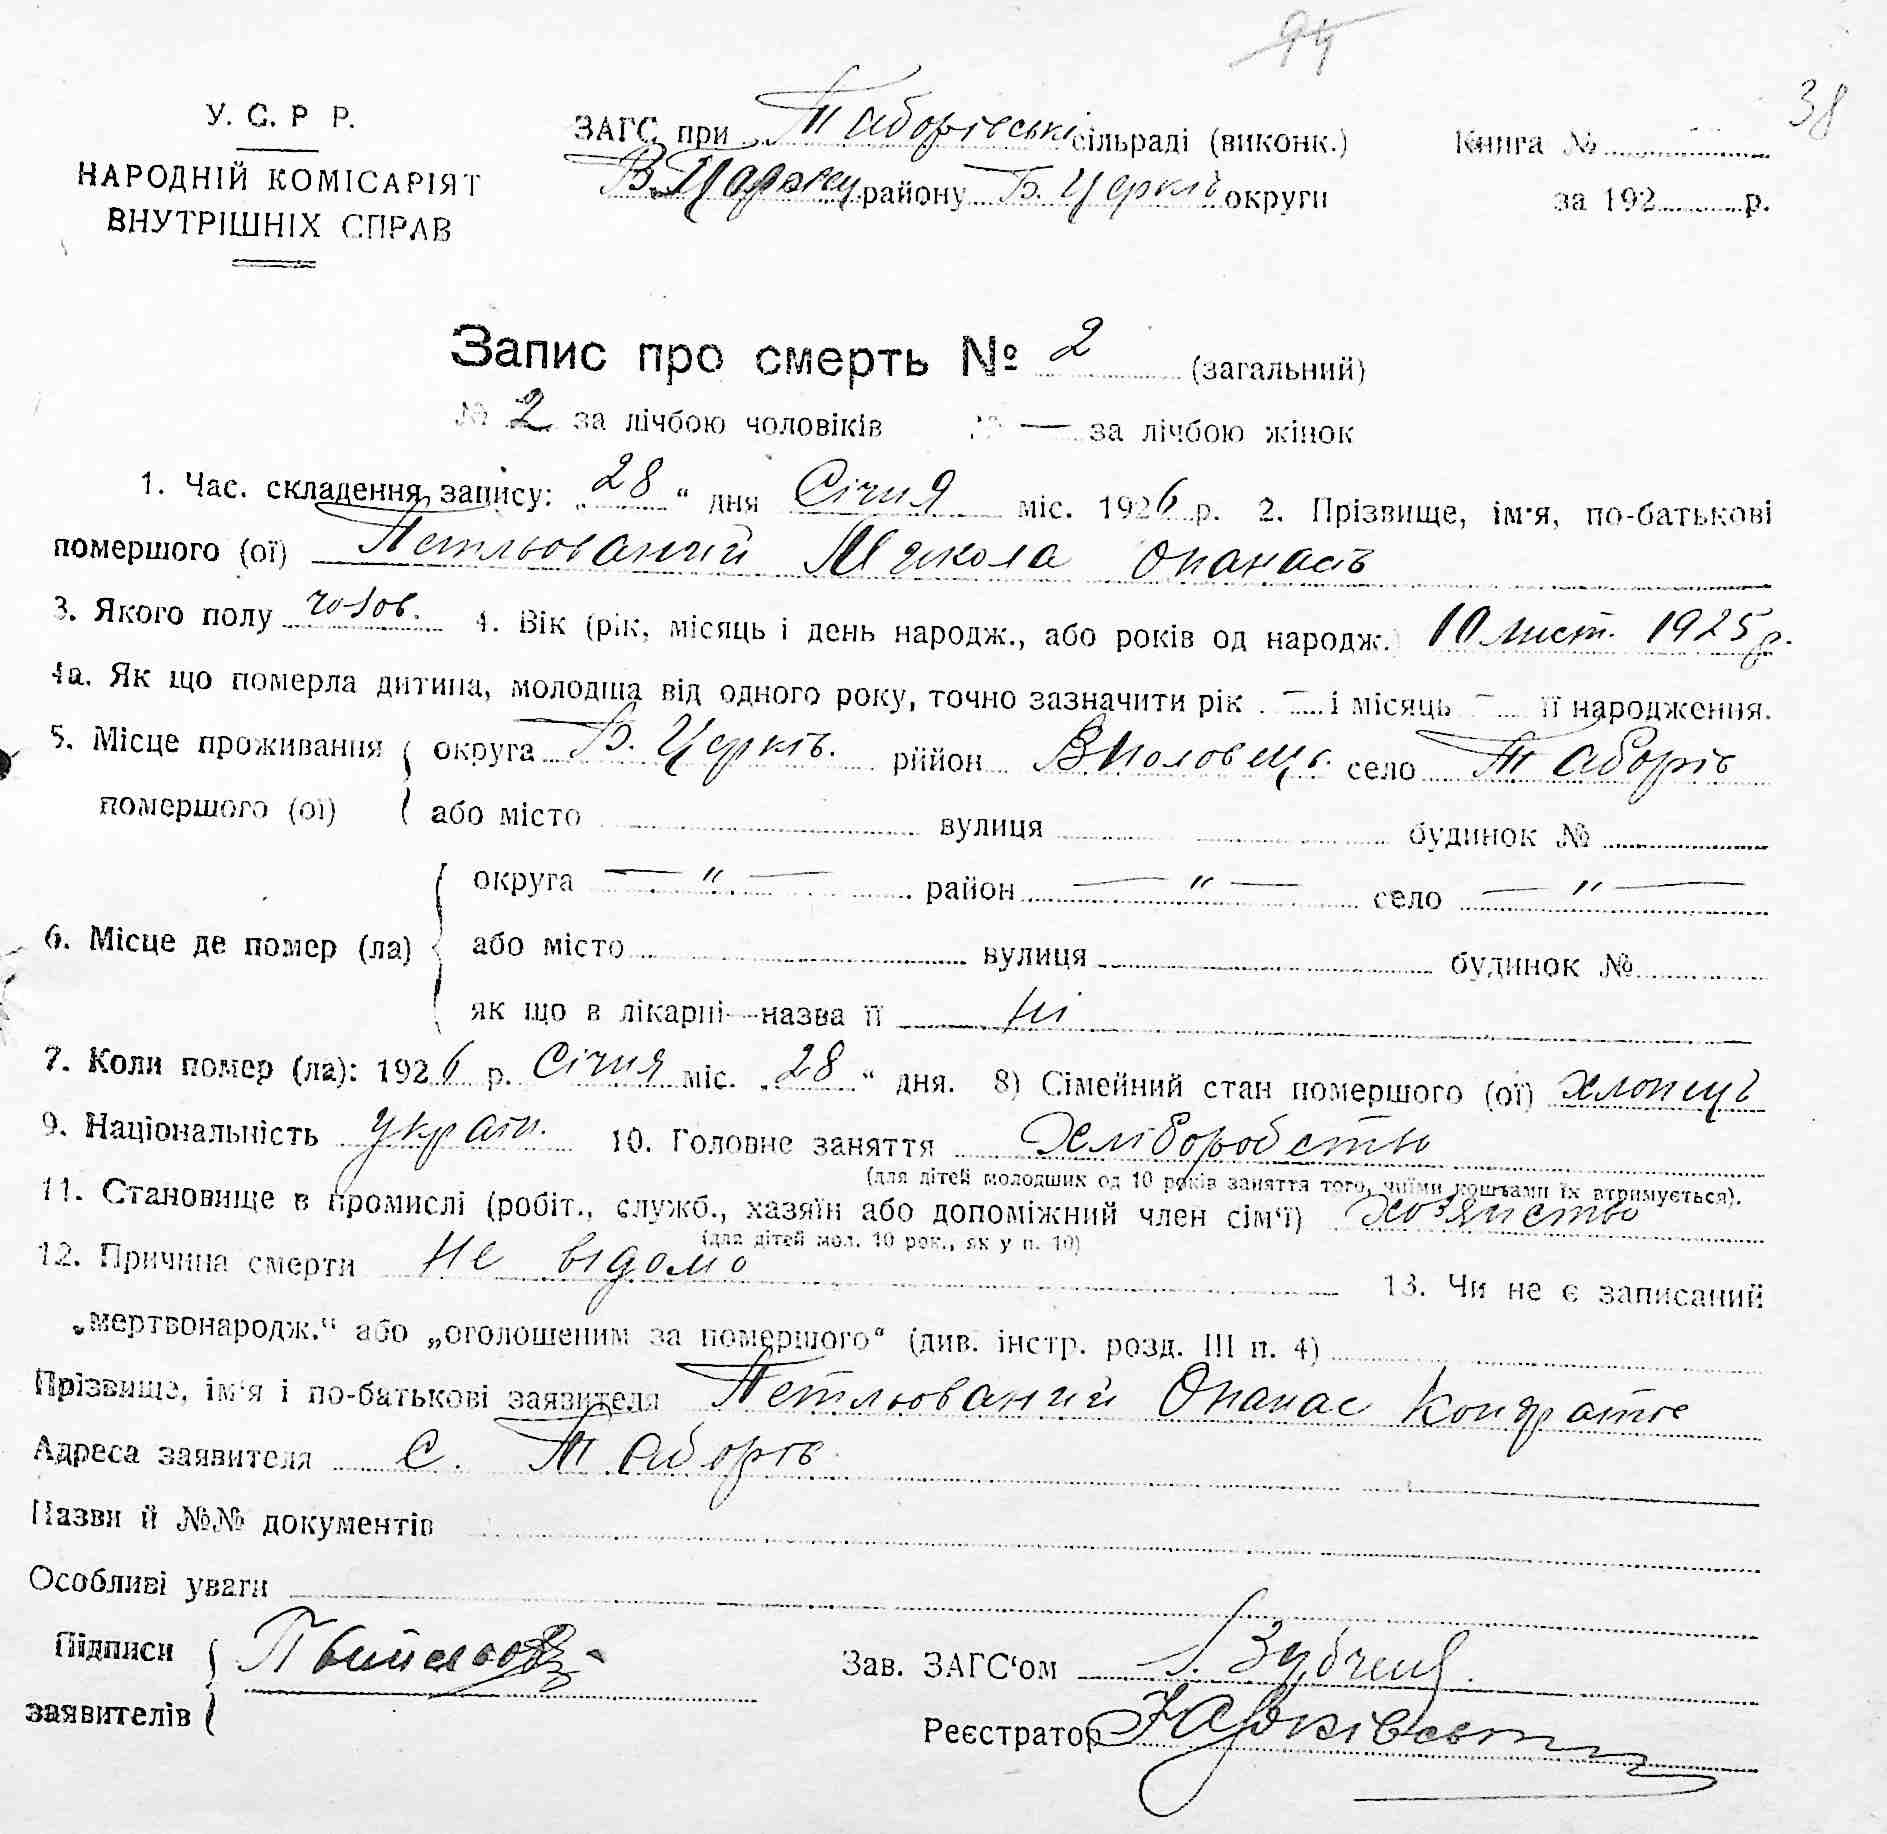 94
38
У. С. Р Р.
НАРОДНІЙ КОМІСАРІЯТ
ВНУТРІШНІХ СПРАВ
ЗАГС при Таборівські сільраді (виконк.)
району Б. Церків округи
Книга №
за 192 р.
Запис про смерть № 2 (загальний)
№ 2 за лічбою чоловіків № — за лічбою жінок
1. Час. складення запису: „28“ дня Січня міс. 1926 р. 2. Прізвище, ім'я, по-батькові
помершого (ої) Петльований Микола Опанасів
3. Якого полу чолов. 4. Вік (рік, місяць і день народж., або років од народж.) 10 лист. 1925 р.
4а. Як що померла дитина, молодша від одного року, точно зазначити рік — і місяць — її народження.
5. Місце проживання помершого (ої)
округа Б. Церків. рййон В Половець. село Таборів
або місто вулиця будинок №
6. Місце де помер (ла)
округа — „ — район — „ — село — „ —
або місто вулиця будинок №
як що в лікарні—назва її ні
7. Коли помер (ла): 1926 р. Січня міс. „28“ дня. 8) Сімейний стан помершого (ої) хлопець
9. Національність україн. 10. Головне заняття Хліборобство
(для дітей молодших од 10 років заняття того, чиїми коштами їх втримується).
11. Становище в промислі (робіт., служб., хазяїн або допоміжний член сім'ї) Хозяйство
(для дітей мол. 10 рок., як у п. 10)
12. Причина смерти Не відомо 13. Чи не є записаний
„мертвонародж.“ або „оголошеним за помершого“ (див. інстр. розд. III п. 4)
Прізвище, ім'я і по-батькові заявителя Петльований Опанас Кондратів
Адреса заявителя с. Таборів
Назви й №№ документів
Особливі уваги
Підписи
заявителів
Зав. ЗАГС'ом
Реєстратор